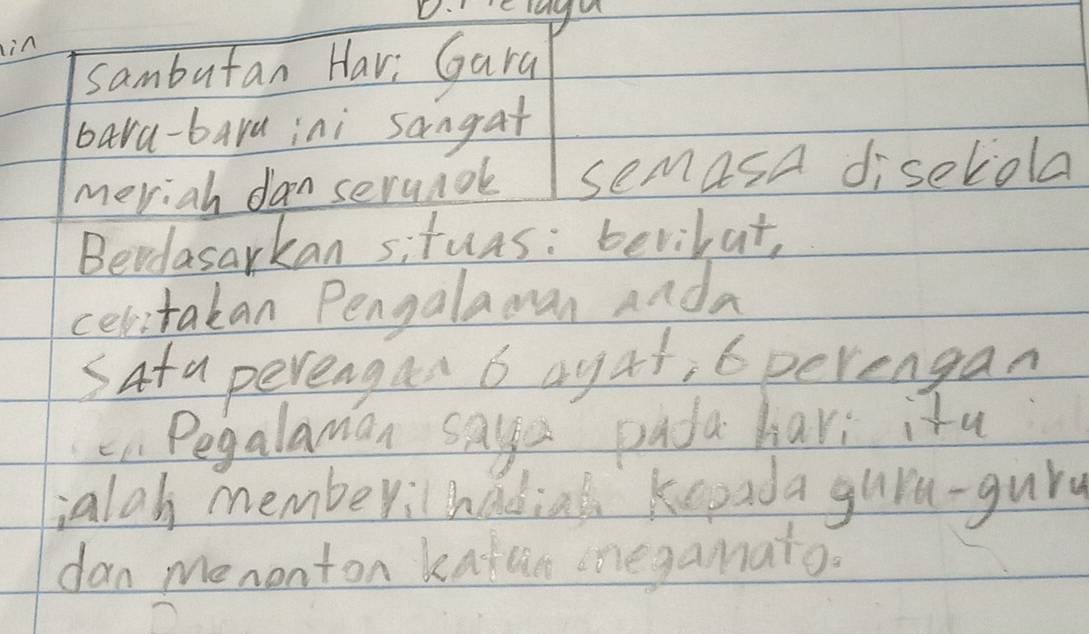 B. Melayu
Sambutan Hari Guru
baru-baru ini sangat
meriah dan serunok
semasa disekola
Berdasarkan situasi berikut,
ceritakan Pengalaman anda
Satu perengan 6 ayat, 6 perengan
Pegalaman saya pada hari itu
ialah memberi hadiah kepada guru-guru
dan Menonton katun megamato.